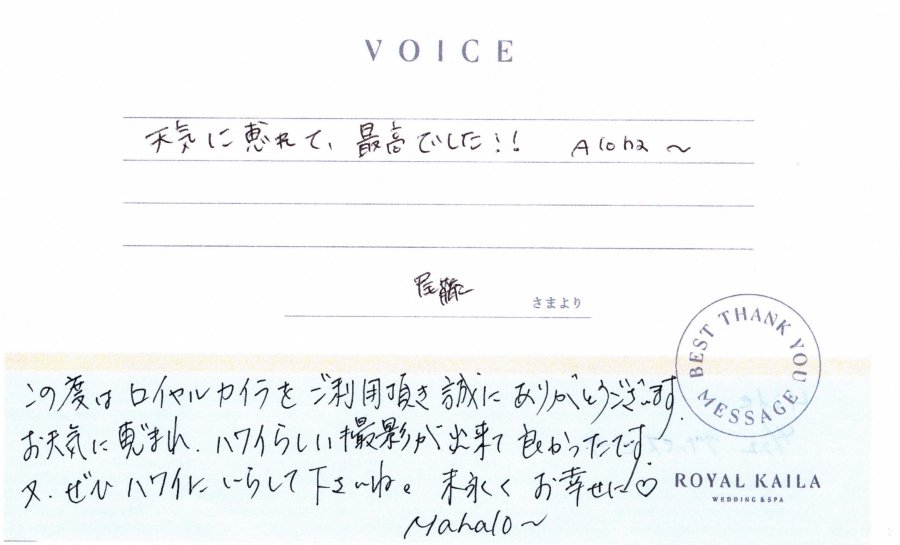 VOICE
天気に恵れて、最高でした!! Aloha〜
さまより
BEST THANK YOU MESSAGE
この度はロイヤルカイラをご利用頂き誠にありがとうございます.
お天気に恵まれ、ハワイらしい撮影が出来て良かったです
又、ぜひハワイにいらして下さいね。末永くお幸せに♡
Mahalo〜
ROYAL KAILA
WEDDING & SPA